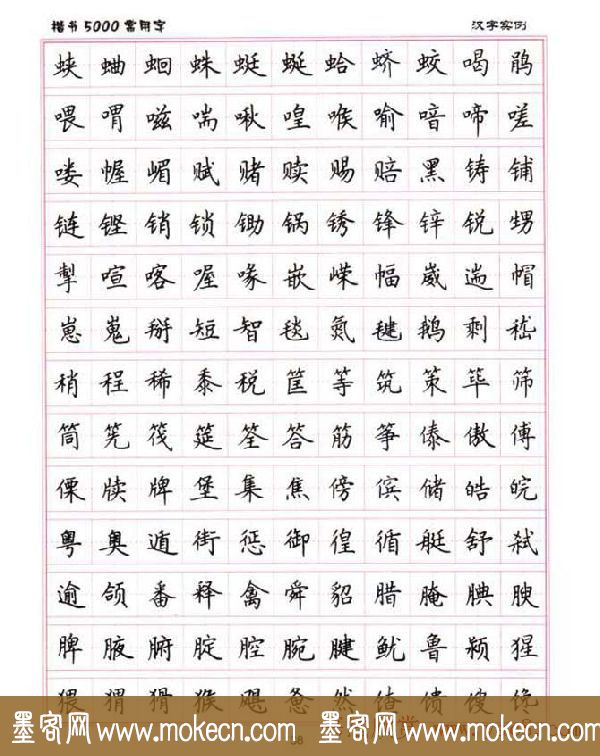 楷书5000常用字 汉字实例
蛱 蛐 蛔 蛛 蜓 蜒 蛤 蛴 蛟 喝 鹃
喂 喟 嗞 喘 啾 喤 喉 喻 喑 啼 嗟
喽 幄 嵋 赋 赌 赎 赐 赔 黑 铸 铺
链 铿 销 锁 锄 锅 锈 锋 锌 锐 甥
掣 喧 喀 喔 喙 嵌 嵘 幅 崴 遄 帽
崽 嵬 掰 短 智 毯 氮 毽 鹅 剩 嵇
稍 程 稀 黍 税 筐 等 筑 策 筚 筛
筒 筅 筏 筵 筌 答 筋 筝 傣 傲 傅
傈 牍 牌 堡 集 焦 傍 傧 储 皓 皖
粤 奥 遁 街 惩 御 徨 循 艇 舒 弑
逾 颌 番 释 禽 舜 貂 腊 腌 腆 腴
脾 腋 腑 腚 腔 腕 腱 鱿 鲁 颍 猩
猥 猬 猾 猴 飓 惫 然 馇 馈 馊 馋
墨客网 www.mokecn.com 墨客网 www.mokecn.com